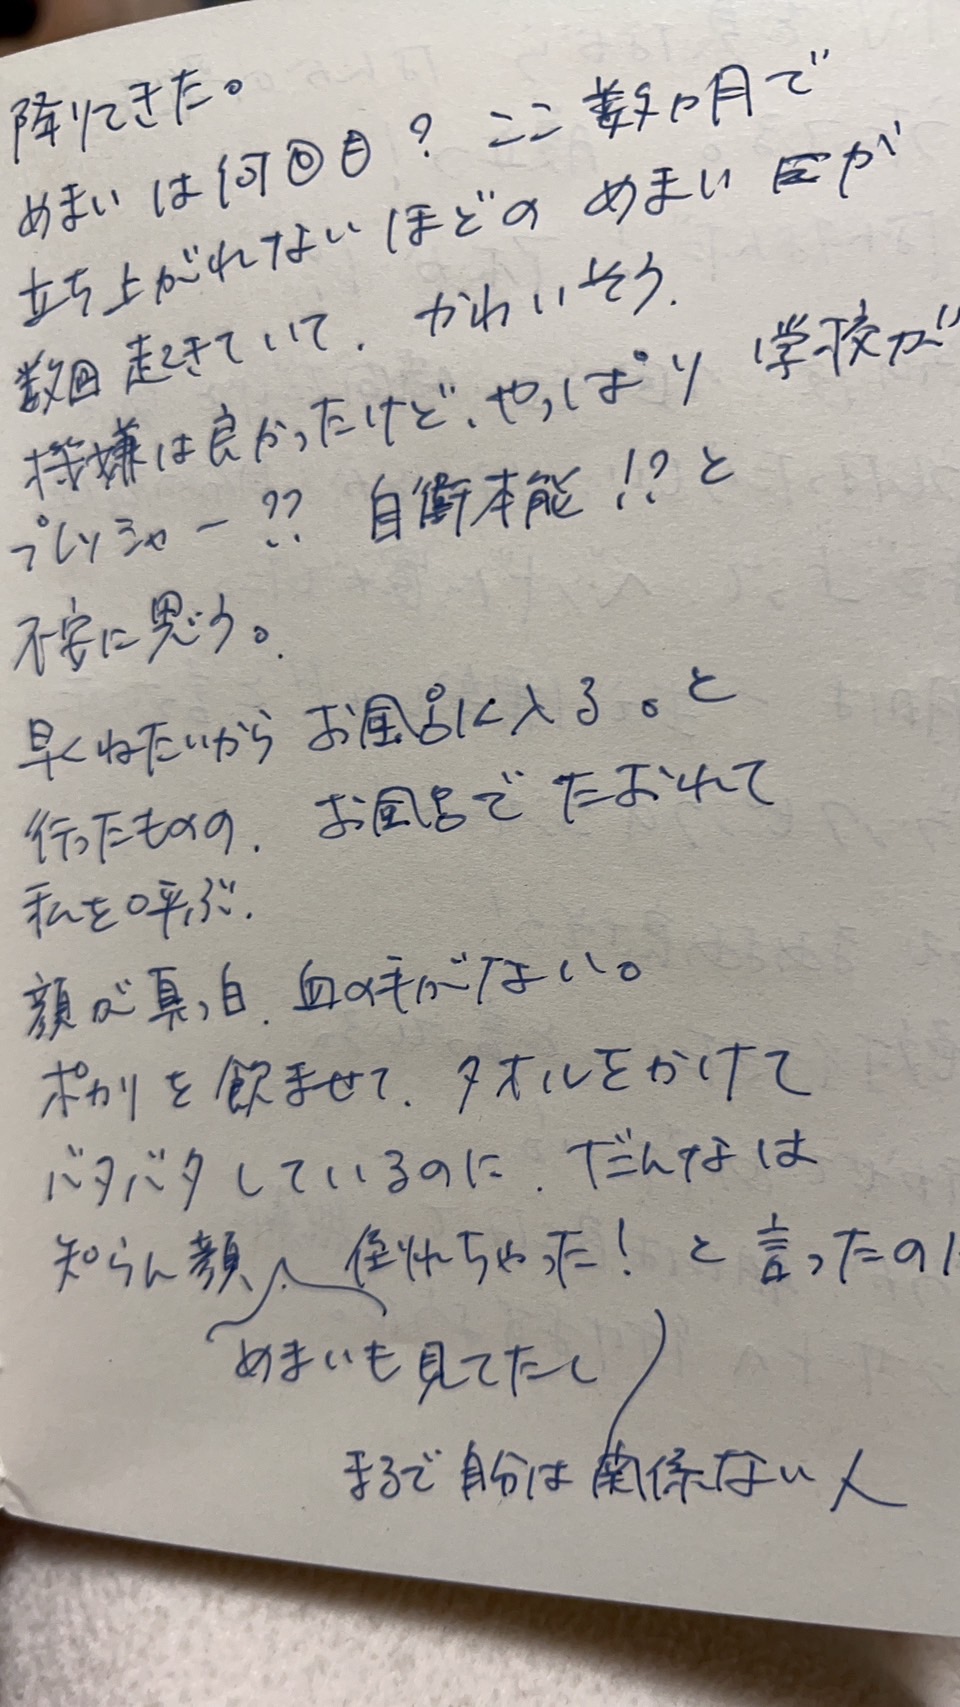 降りてきた。
めまいは何回目？ここ数ヵ月で
立ち上がれないほどの めまいが
数回起きていて、かわいそう.
機嫌は良かったけど、やっぱり 学校が
プレッシャー?? 自衛本能!?と
不安に思う。
早くねたいから お風呂に入る。と
行ったものの、お風呂で たおれて
私を呼ぶ.
顔が真っ白、血の毛がない。
ポカリを飲ませて、タオルをかけて
バタバタしているのに、だんなは
知らん顔、倒れちゃった！と言ったのに
めまいも見てたし
まるで自分は関係ない人